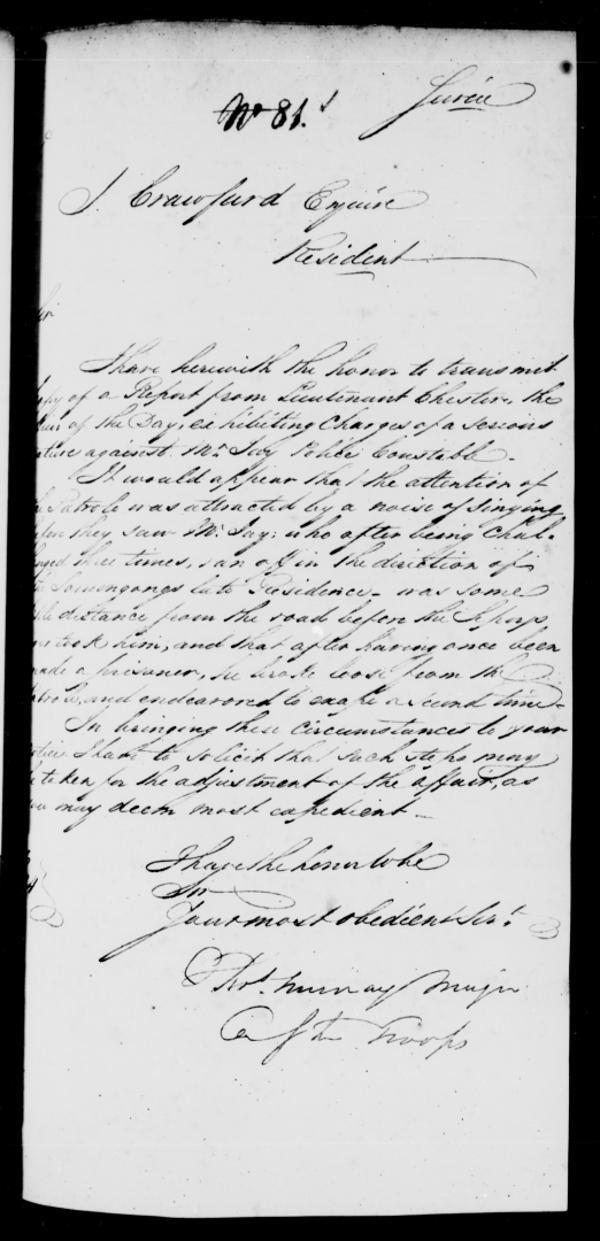 Service
No 81.
J. Crawfurd Esquire
Resident
Sir
I have herewith the honor to transmit
Copy of a Report from Lieutenant Chester, the
of the Day, exhibiting Charges of a serious
nature against Mr. Jay Police Constable.
It would appear that the attention of
the Patrole was attracted by a noise of singing
before they saw Mr. Jay; who after being Chal-
lenged three times, ran off in the direction of
the Tomongongs late Residence - was some
little distance from the road before the Sepoys
over took him, and that after having once been
made a prisoner, he broke loose from the
Patrole, and endeavored to escape a second time -
In bringing these circumstances to your
notice I have to solicit that such steps may
be taken for the adjustment of the affair, as
you may deem most expedient -
I have the honor to be
Sir
Your most obedient Sert.
Thos. Murray Major
Troops